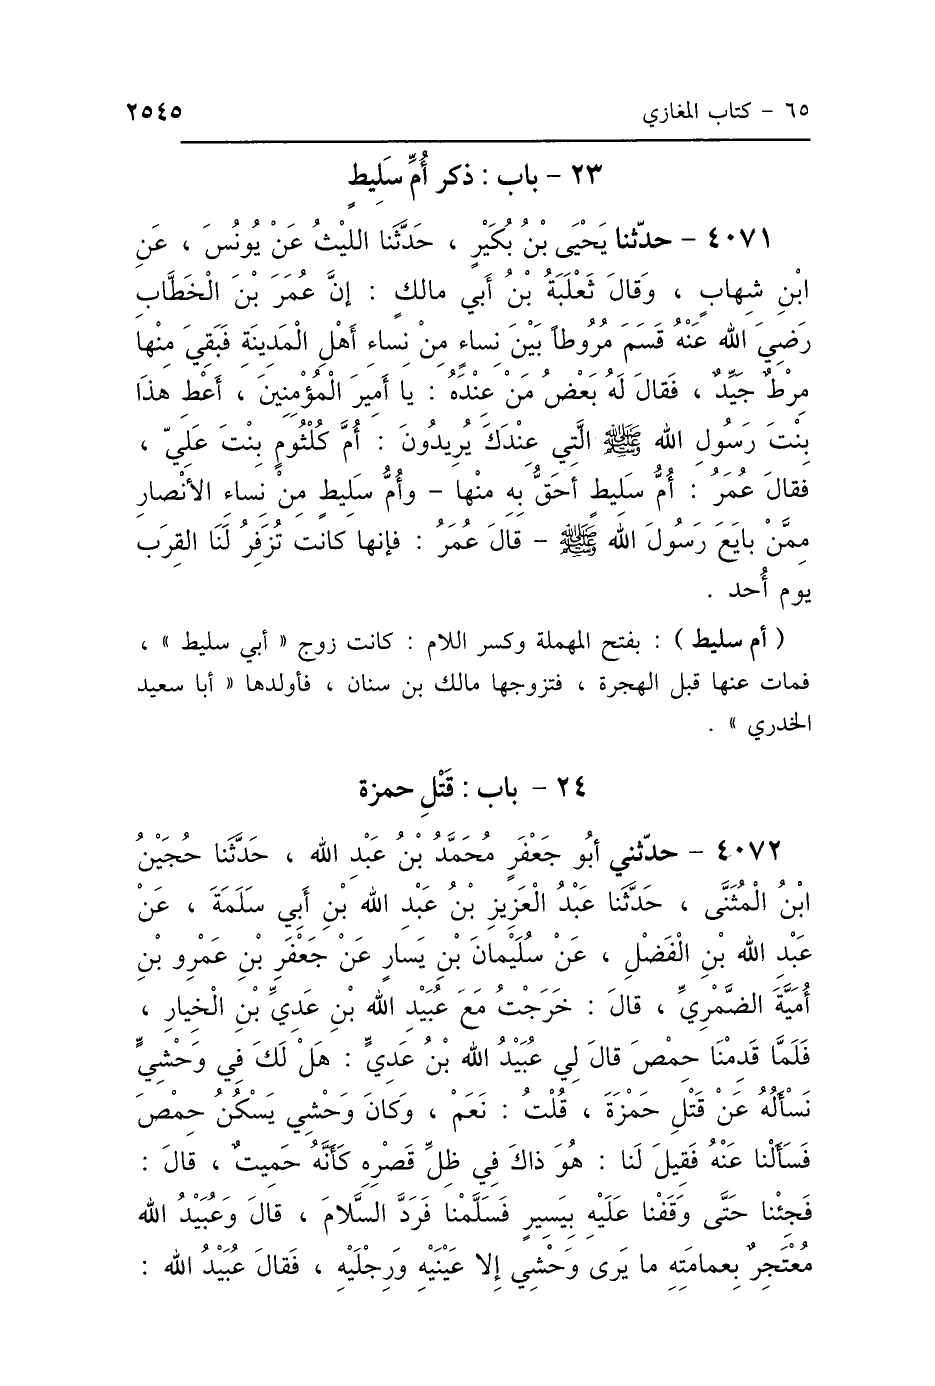 ٦٥ - كتاب المغازي ٢٥٤٥
٢٣ - باب : ذكر أُمِّ سَلِيطٍ
٤٠٧١ - حدّثنا يَحْيَى بْنُ بُكَيْرٍ ، حَدَّثَنا الليْثُ عَنْ يُونُسَ ، عَنِ
ابْنِ شِهابٍ ، وَقالَ ثَعْلَبَةُ بْنُ أَبي مالكٍ : إنَّ عُمَرَ بْنَ الْخَطَّابِ
رَضِيَ الله عَنْهُ قَسَمَ مُرُوطاً بَيْنَ نِساءٍ مِنْ نِساءِ أَهْلِ الْمَدِينَةِ فَبَقِيَ مِنْها
مِرْطٌ جَيِّدٌ ، فَقالَ لَهُ بَعْضُ مَنْ عِنْدَهُ : يا أَمِيرَ الْمُؤْمِنِينَ ، أَعْطِ هذَا
بِنْتَ رَسُولِ الله ﷺ الَّتِي عِنْدَكَ يُرِيدُونَ : أُمَّ كُلْثُومٍ بِنْتَ عَلِيّ ،
فقالَ عُمَرُ : أُمُّ سَلِيطٍ أحَقُّ بِهِ مِنْها - وأُمُّ سَلِيطٍ مِنْ نِساءِ الأنْصارِ
مِمَّنْ بايَعَ رَسُولَ الله ﷺ - قالَ عُمَرُ : فإنها كانت تُزْفِرُ لَنَا القِرَب
يوم أُحد .
( أم سليط ) : بفتح المهملة وكسر اللام : كانت زوج « أبي سليط » ،
فمات عنها قبل الهجرة ، فتزوجها مالك بن سنان ، فأولدها « أبا سعيد
الخدري » .
٢٤ - باب : قَتْلِ حمزة
٤٠٧٢ - حدّثني أبُو جَعْفَرٍ مُحَمَّدُ بْنُ عَبْدِ الله ، حَدَّثَنا حُجَيْنُ
ابْنُ الْمُثَنَّى ، حَدَّثَنا عَبْدُ الْعَزِيزِ بْنُ عَبْدِ الله بْنِ أَبي سَلَمَةَ ، عَنْ
عَبْدِ الله بْنِ الْفَضْلِ ، عَنْ سُلَيْمانَ بْنِ يَسارٍ عَنْ جَعْفَرِ بْنِ عَمْرِو بْنِ
أُمَيَّةَ الضَّمْرِيِّ ، قالَ : خَرَجْتُ مَعَ عُبَيْدِ الله بْنِ عَدِيِّ بْنِ الْخيارِ ،
فَلَمَّا قَدِمْنَا حِمْصَ قالَ لي عُبَيْدُ الله بْنُ عَدِيٍّ : هَلْ لَكَ فِي وَحْشِيٍّ
نَسْأَلُهُ عَنْ قَتْلِ حَمْزَةَ ، قُلْتُ : نَعَمْ ، وَكانَ وَحْشِي يَسْكُنُ حِمْصَ
فَسَأَلْنا عَنْهُ فَقِيلَ لَنا : هُوَ ذاكَ فِي ظِلِّ قَصْرِهِ كَأَنَّهُ حَمِيتٌ ، قالَ :
فَجِئْنا حَتَّى وَقَفْنا عَلَيْهِ بِيَسِيرٍ فَسَلَّمْنا فَرَدَّ السَّلامَ ، قالَ وَعُبَيْدُ الله
مُعْتَجِرٌ بِعِمامَتِهِ ما يَرى وَحْشِي إلا عَيْنَيْهِ وَرِجْلَيْهِ ، فَقالَ عُبَيْدُ الله :